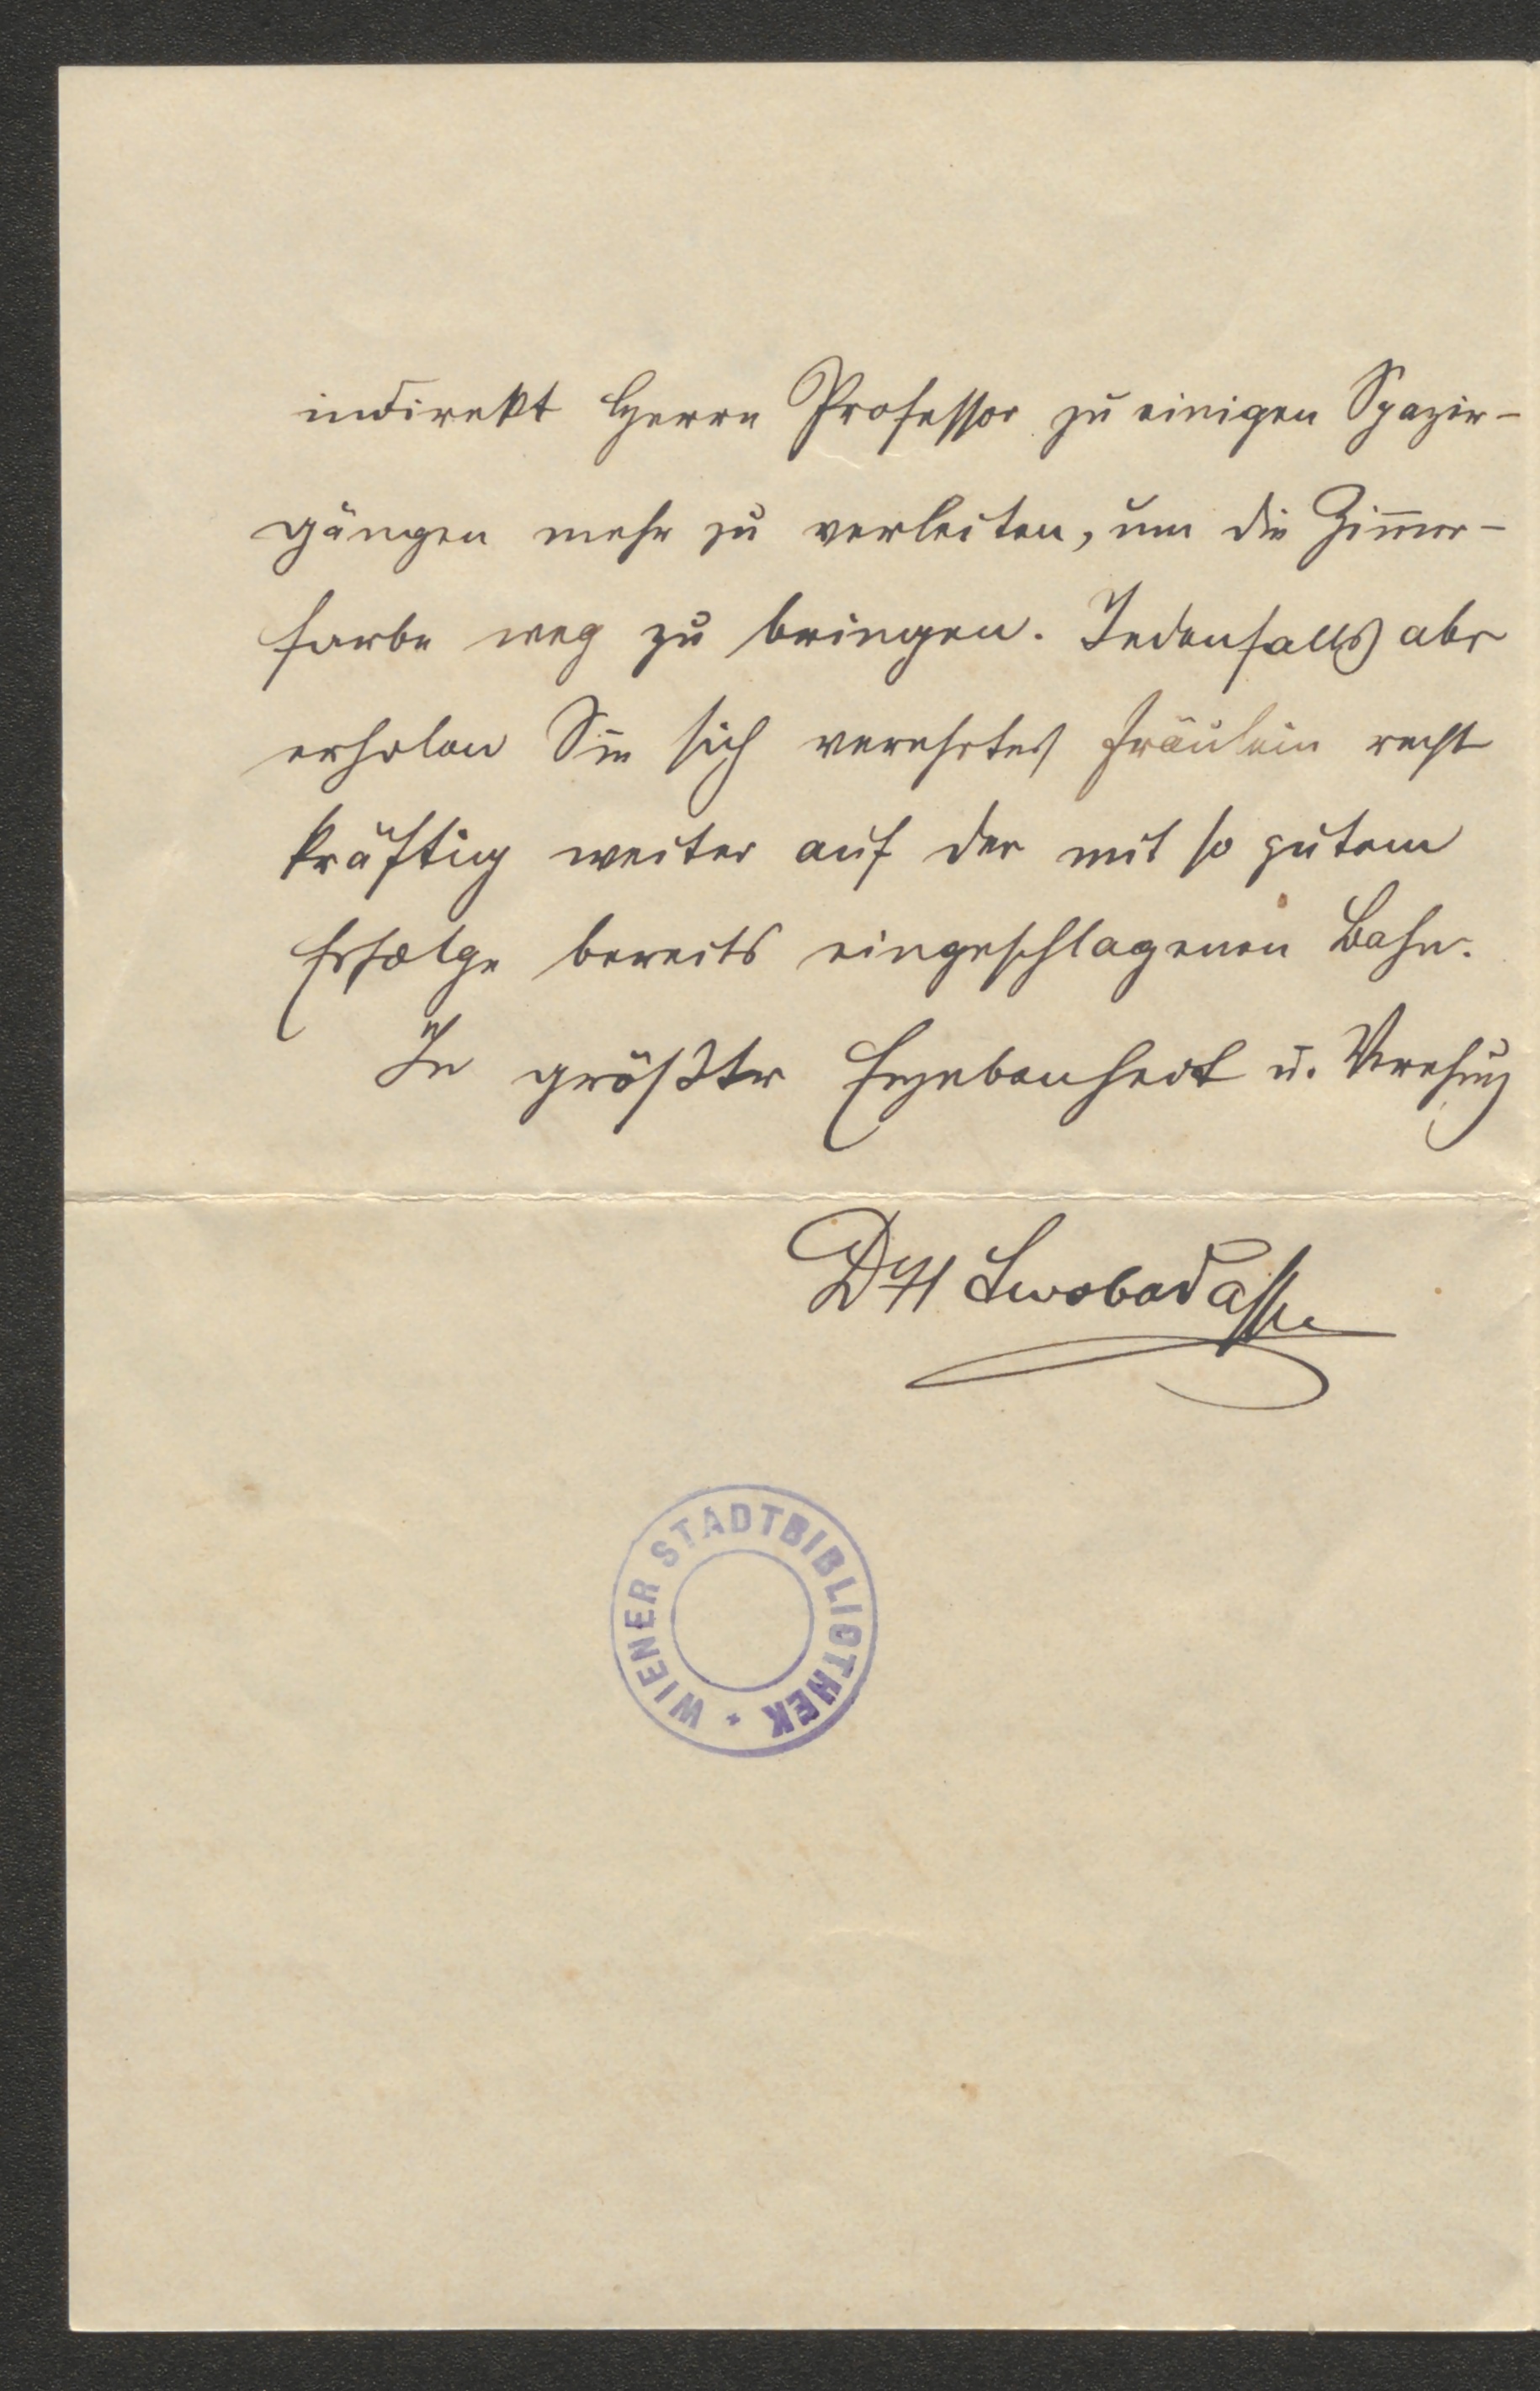 indirekt Herrn Professor zu einigen Spazir-
gängen mehr zu verleiten, um die Zim̄er-
farbe weg zu bringen. Jedenfalls aber
erholen Sie sich verehrtes Fräulein recht
kräftig weiter auf der mit so gutem
Erfolge bereits eingeschlagenen Bahn.
In größter Ergebenheit u. Verehrung
Dr H Swoboda
WIENER STADTBIBLIOTHEK *